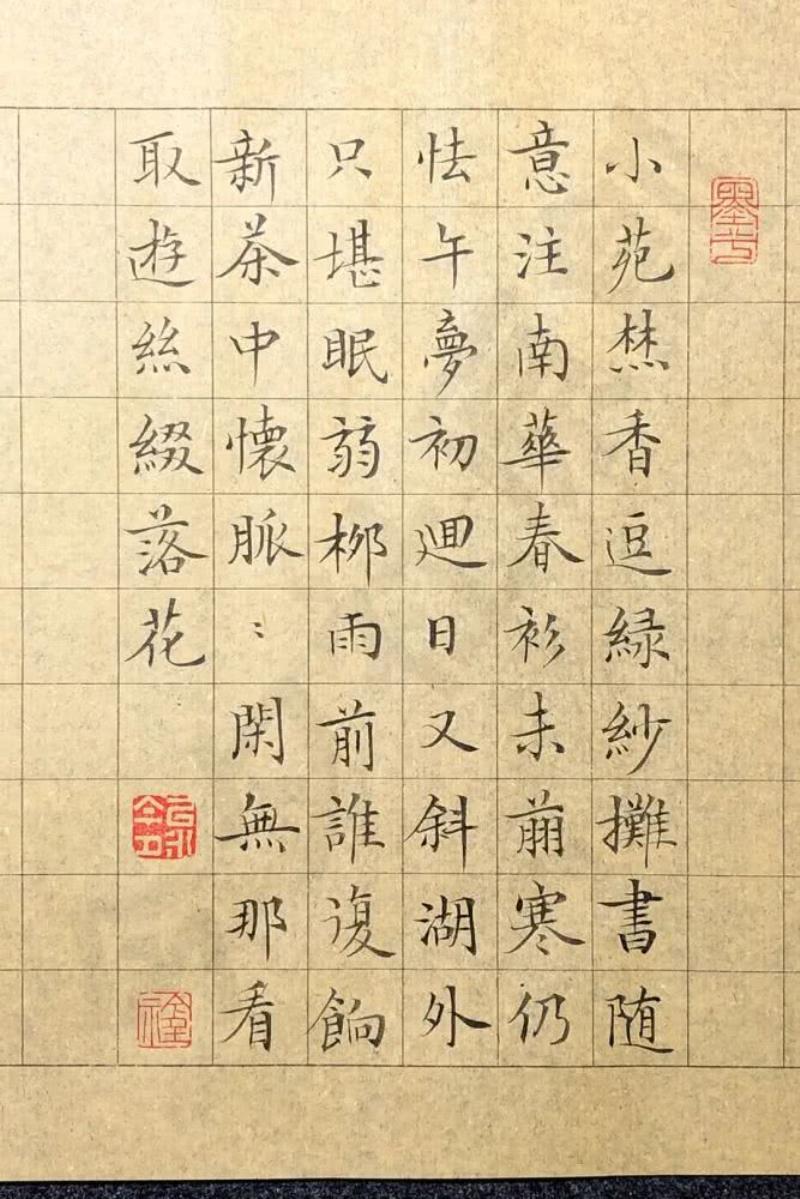 小苑焚香逗緑紗攤書随
意注南華春衫未翦寒仍
怯午夢初迴日又斜湖外
只堪眠弱柳雨前誰復餉
新茶中懷脈〻閑無那看
取遊絲綴落花